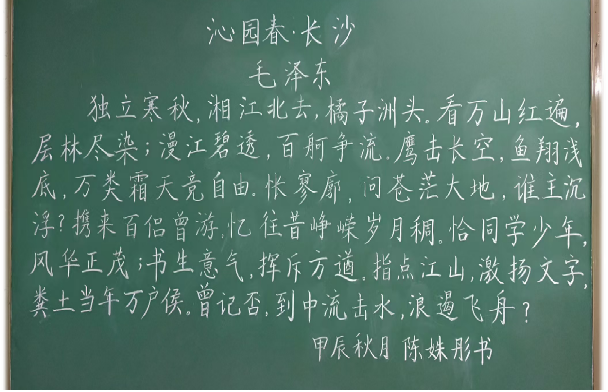 沁园春·长沙
毛泽东
独立寒秋,湘江北去,橘子洲头。看万山红遍,
层林尽染;漫江碧透,百舸争流。鹰击长空,鱼翔浅
底,万类霜天竞自由。怅寥廓,问苍茫大地,谁主沉
浮?携来百侣曾游.忆往昔峥嵘岁月稠。恰同学少年,
风华正茂;书生意气,挥斥方遒。指点江山,激扬文字,
粪土当年万户侯。曾记否,到中流击水,浪遏飞舟?
甲辰秋月 陈姝彤书